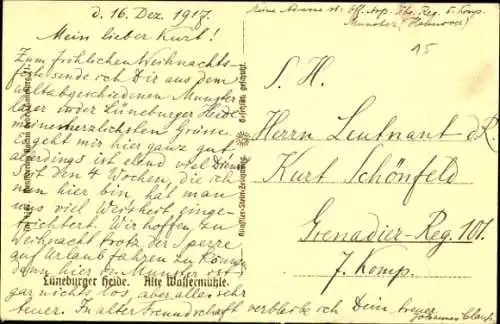 d. 16. Dez. 1917.
Mein lieber Kurt!
Zum fröhlichen Weihnachts-
feste sende ich Dir aus dem
weltabgeschiedenen Munster
lager in der Lüneburger Heide
meine herzlichsten Grüsse.
geht mir hier ganz gut
allerdings ist elend viel Dienst
In den 4 Wochen, die ich
nun hier bin, hat man
uns viel Weisheit einge-
trichtert. Wir hoffen, zu
Weihnacht trotz der Sperre
auf Urlaub fahren zu können
denn hier in Munster ist
gar nichts los, aber alles sehr
teuer. In alter Freundschaft verbleibe ich Dein treuer
Johannes
Meine Adresse ist: Off. Asp. Reg. 5. Komp.
Munster (Hannover)
15
S. H.
Herrn Leutnant d. R.
Kurt Schönfeld
Grenadier-Reg. 101.
7. Komp.
Lüneburger Heide. Alte Wassermühle.
Künstler-Stein-Zeichnung
Gesetzlich geschützt.